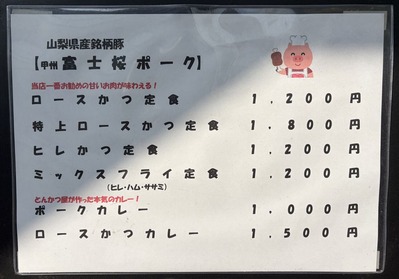 山梨県産銘柄豚
【甲州 富士桜ポーク】
当店一番お勧めの甘いお肉が味わえる!
ロースかつ定食 1.200円
特上ロースかつ定食 1.800円
ヒレかつ定食 1.200円
ミックスフライ定食 1.200円
(ヒレ・ハム・ササミ)
とんかつ屋が作った本気のカレー!
ポークカレー 1.000円
ロースかつカレー 1.500円